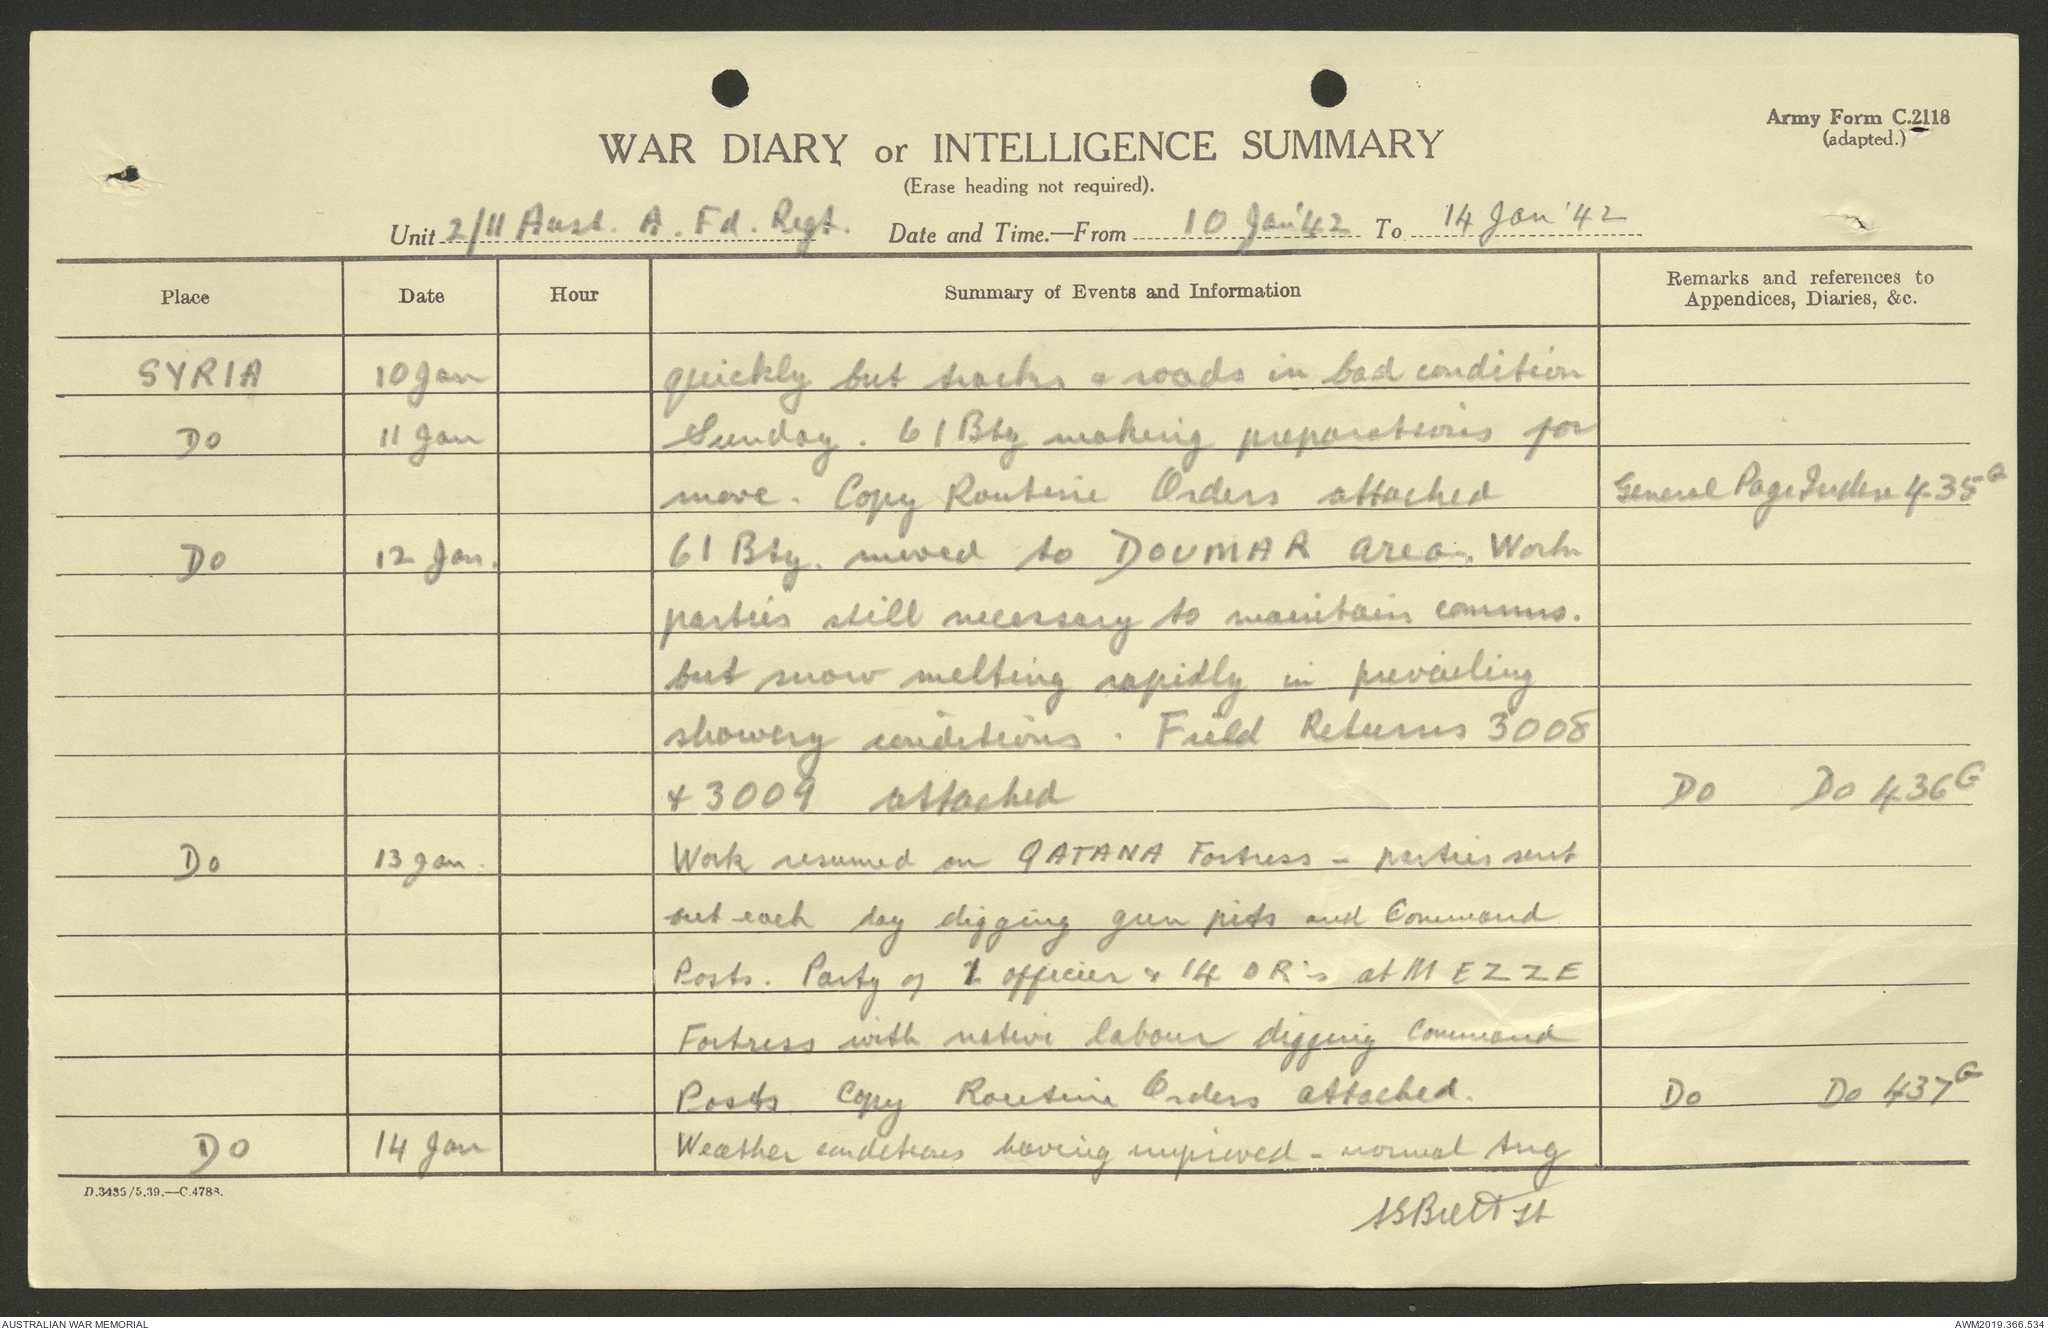 Army Form C.2118
(adapted.)
WAR DIARY or INTELLIGENCE SUMMARY
(Erase heading not required).
Unit 2/11 Aust. A. Fd. Regt. Date and Time.—From 10 Jan '42 To 14 Jan '42
Place Date Hour Summary of Events and Information Remarks and references to
Appendices, Diaries, &c.
SYRIA 10 Jan quickly but tracks & roads in bad condition
Do 11 Jan Sunday. 61 Bty making preparations for
move. Copy Routine Orders attached General Page Index 435G
Do 12 Jan. 61 Bty. moved to DOUMAR area. Work
parties still necessary to maintain comms.
but snow melting rapidly in prevailing
showery conditions. Field Returns 3008
& 3009 attached Do Do 436G
Do 13 Jan. Work resumed on QATANA Fortress - parties sent
out each day digging gun pits and Command
Posts. Party of officer & 14 OR's at MEZZE
Fortress with native labour digging Command
Posts Copy Routine Orders attached. Do Do 437G
Do 14 Jan Weather conditions having improved - normal trng
D.3435/5.39.—C.4788.
Brett Lt
AUSTRALIAN WAR MEMORIAL
AWM2019.366.534